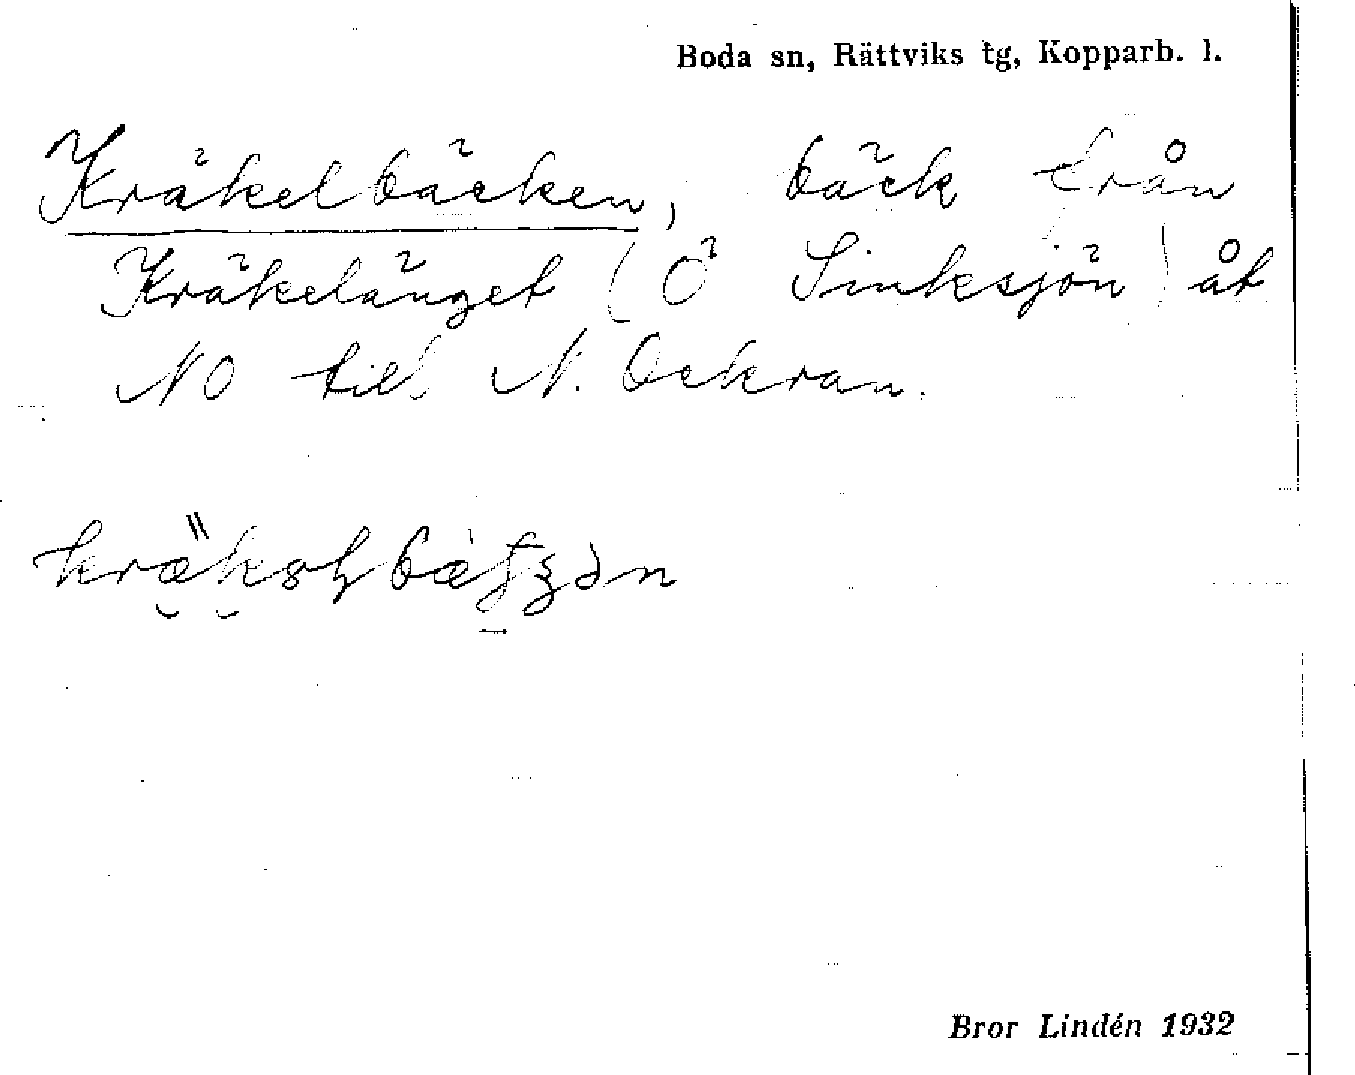 Boda sn, Rättviks tg, Kopparb. l.
Kräkelbäcken, bäck från
Kräkelänget (Ö Sinksjön) åt
NO till N. Ockran.
Bror Lindén 1932